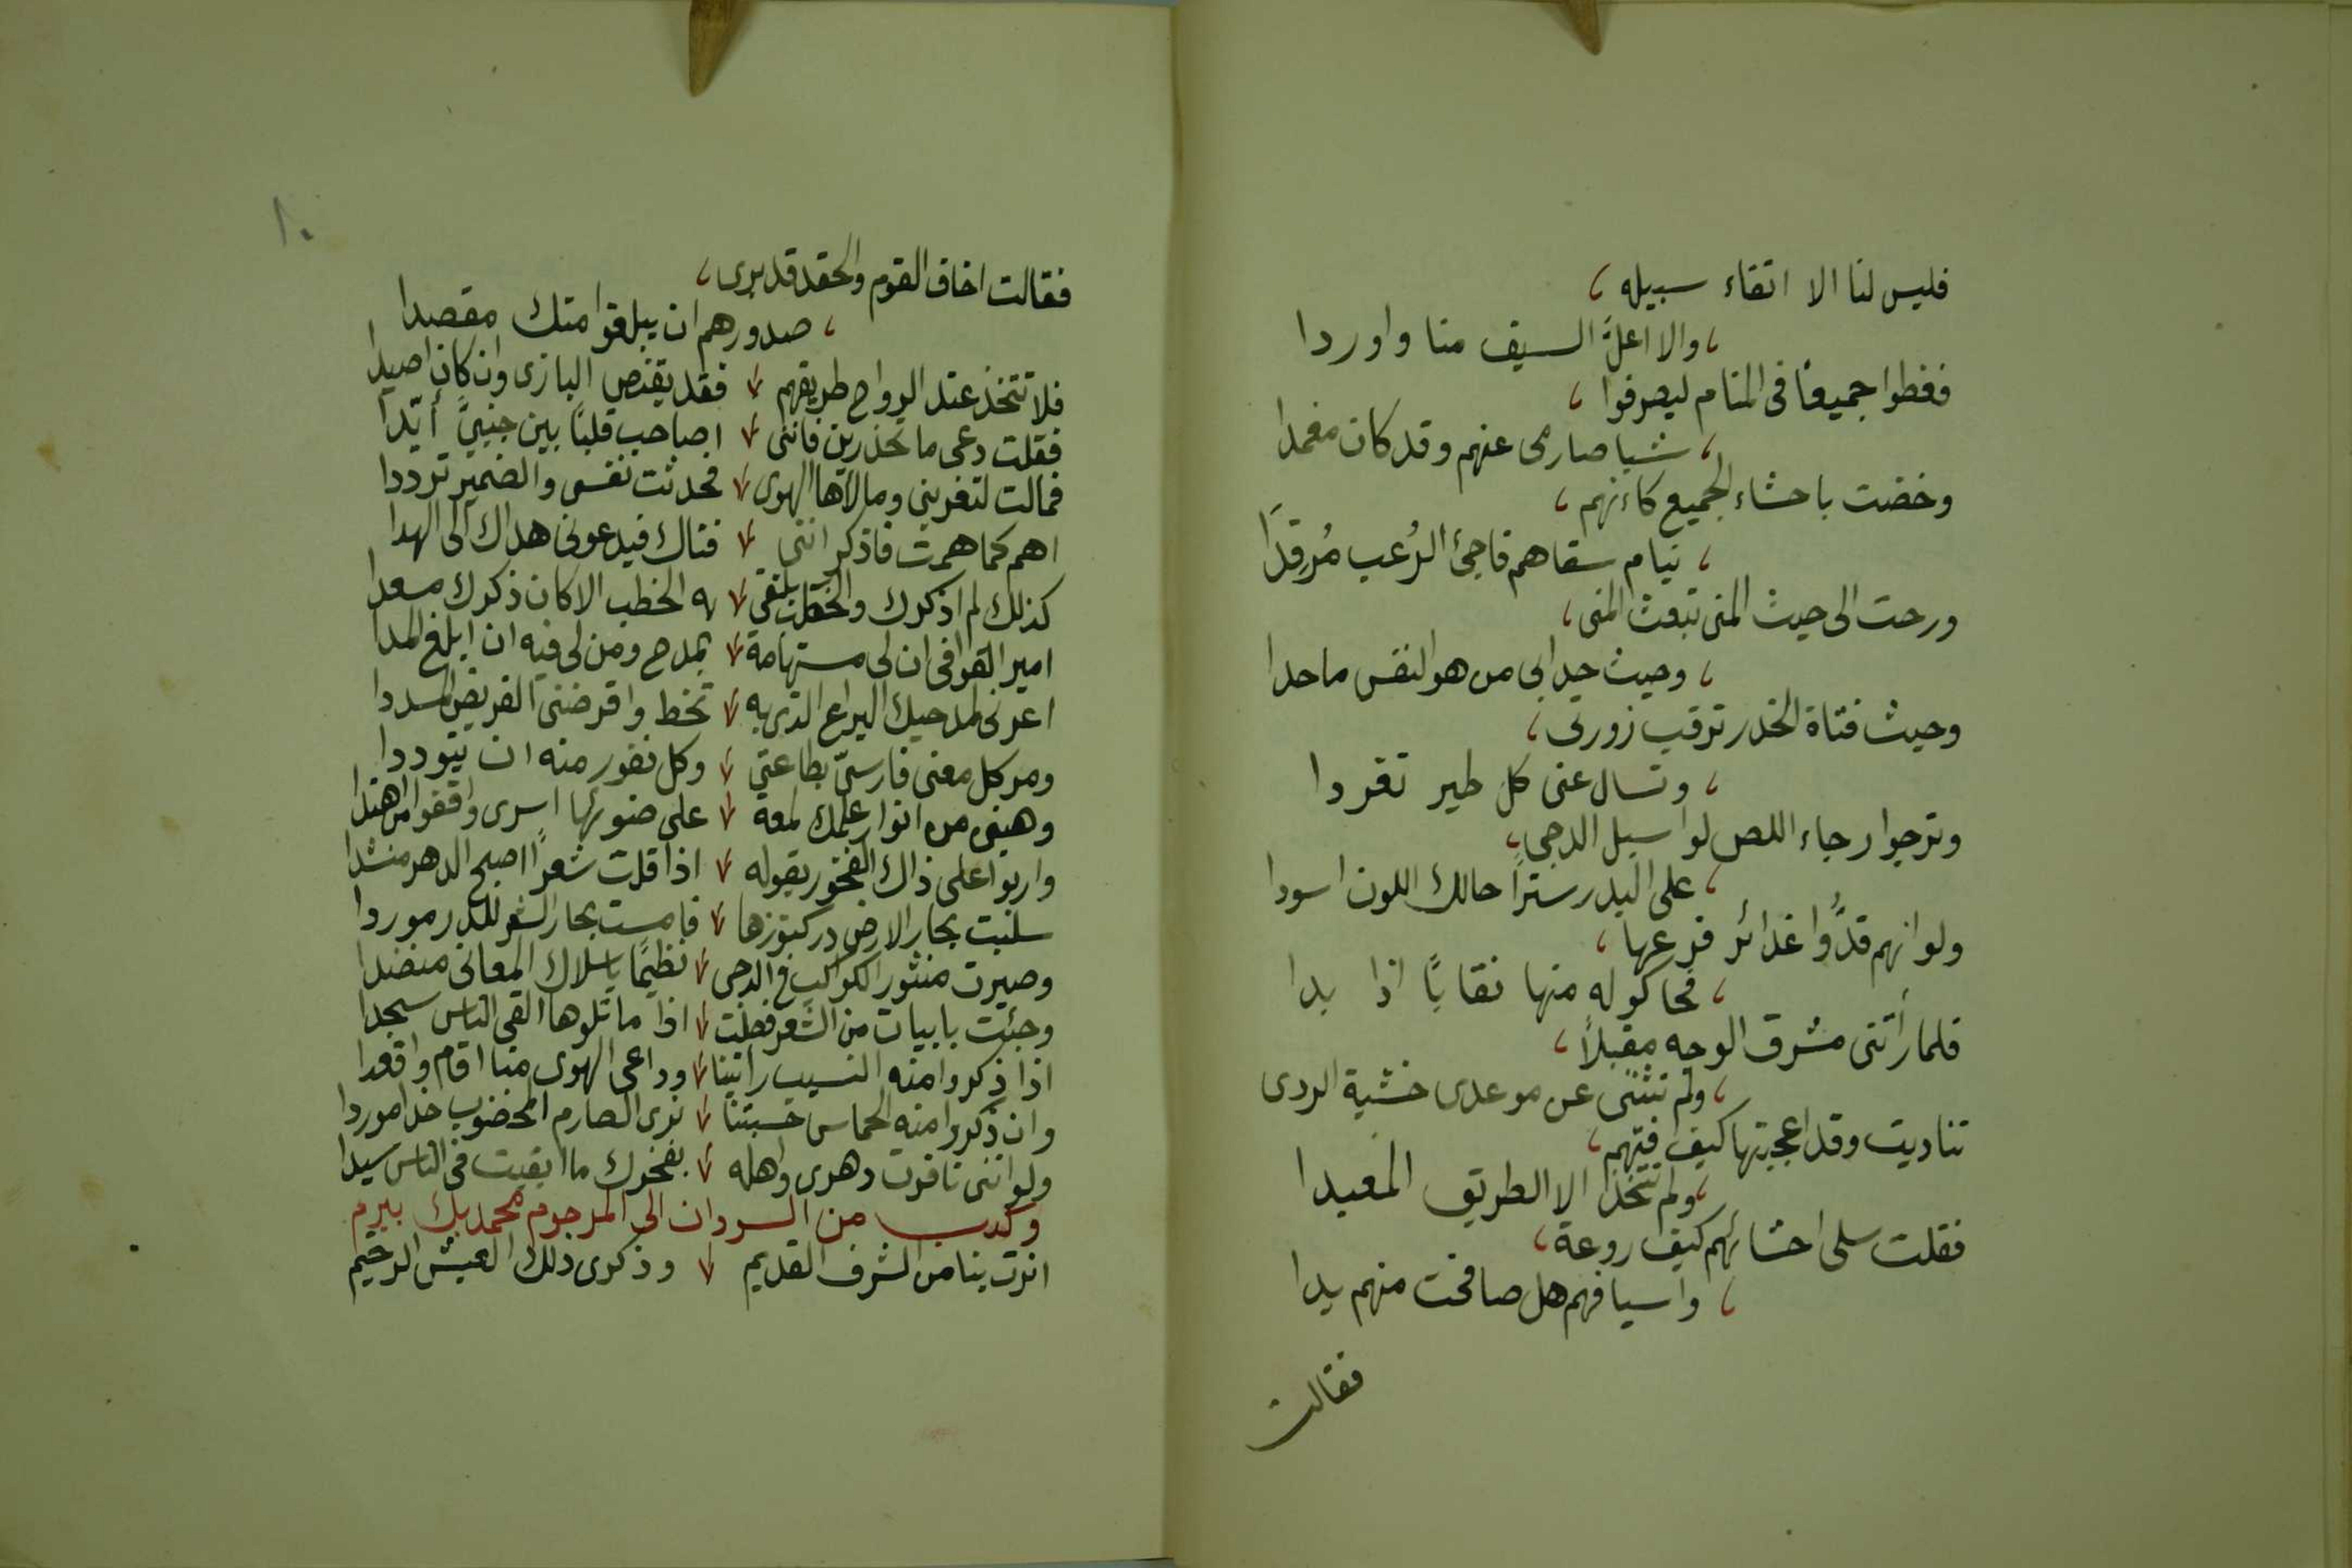 فليس لنا الا اتقاء سبيله ،
، والا اعلَّ السيف منا واوردا
فغطوا جميعًا فى المنام ليصرفوا ،
، شبا صارمى عنهم وقد كان مغمدا
وخضت باحشاء الجميع كاءنهم ،
، نيام سقاهم فاجئ الرُعب مُرقِدَا
ورحت الى حيث المنى تبعث المنى ،
، وحيث حدا بى من هو النفس ما حدا
وحيث فتاة الخدر ترقب زورتى ،
، وتسال عنى كل طير تغردا
وترجوا رجاء اللص لو اسبل الدجى ،
، على البدر سترًا حالك اللون اسودا
ولو انهم قدُّوا غدائر فرعها ،
، فحاكو له منها نقابًا اذا بدا
فلما رأتنى مشرق الوجه مقبلاً ،
، ولم تثننى عن موعدى خشية الردى
تناديت وقد اعجبتها كيف فتّهم ،
، ولم تتخذ الا الطريق المعبدا
فقلت سلى احشائهم كيف روعة ،
، واسيافهم هل صافحت منهم يدا
فقالت
١٠
فقالت اخاف القوم والحقد قد برى ،
، صدورهم ان يبلغوا منك مقصدا
فلا تتخذ عند الرواح طريقهم ، فقد يقنص البازى وان كان اصيدا
فقلت دعى ما تحذرين فاننى ، اصاحب قلبًا بين جنبيَّ أيّدا
فمالت لتغرينى ومالأها الهوى ، فحدثت نفسى والضمير ترددا
اهم كما همت فاذكر اننى ، فتاك فيدعونى هداك الى الهدا
كذلك لم اذكرك والخطب يلتقى ، به الخطب الا كان ذكرك مسعدا
امير القوافى ان لى مستهامة ، بمدح ومن لى فيه ان ابلغ المدا
اعرنى لمدحيك اليراع الذى به ، تخط واقرضنى القريض المسددا
ومر كل معنى فارسىّ بطاعتى ، وكل نفور منه ان يتوددا
وهبنى من انوار علمك لمعة ، على ضوئها اسرى واقفوا من اهتدا
واربوا على ذاك الفخور بقوله ، اذا قلت شعرًا اصبح الدهر منشدا
سلبت بحار الارض در كنوزها ، فامست بحار الشعر للدر موردا
وصيرت منثور الكواكب فى الدجى ، نظيمًا باسلاك المعانى منضدا
وجئت بابيات من الشعر فصلت ، اذا ما تلوها القى الناس سجدا
اذا ذكروا منه النسيب رايتنا ، وداعى الهوى منا اقام واقعدا
وان ذكروا منه الحماس حسبتنا ، نرى الصارم المخضوب خدا موردا
ولو اننى نافرت دهرى واهله ، بفخرك ما ابقيت فى الناس سيدا
وكتب من السودان الى المرحوم محمد بك بيرم
اثرت بنا من الشرف القديم ، وذكرى ذلك العيش الرخيم